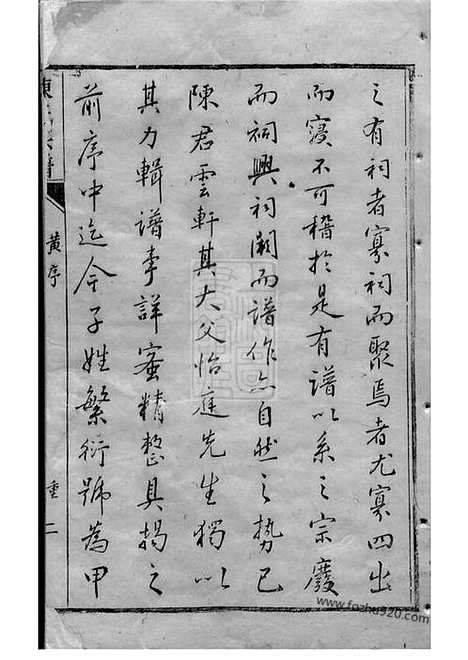 之有祠者寡祠而聚焉者尤寡四出
而寖不可稽於是有譜以系之宗廢
而祠興祠闕而譜作亦自然之勢已
陳君雲軒其大父怡庭先生獨以
其力輯譜事詳蜜精整具揭之
前序中迄今子姓繁衍號為甲
陳氏宗譜
黃序
重二
www.fozhu920.com